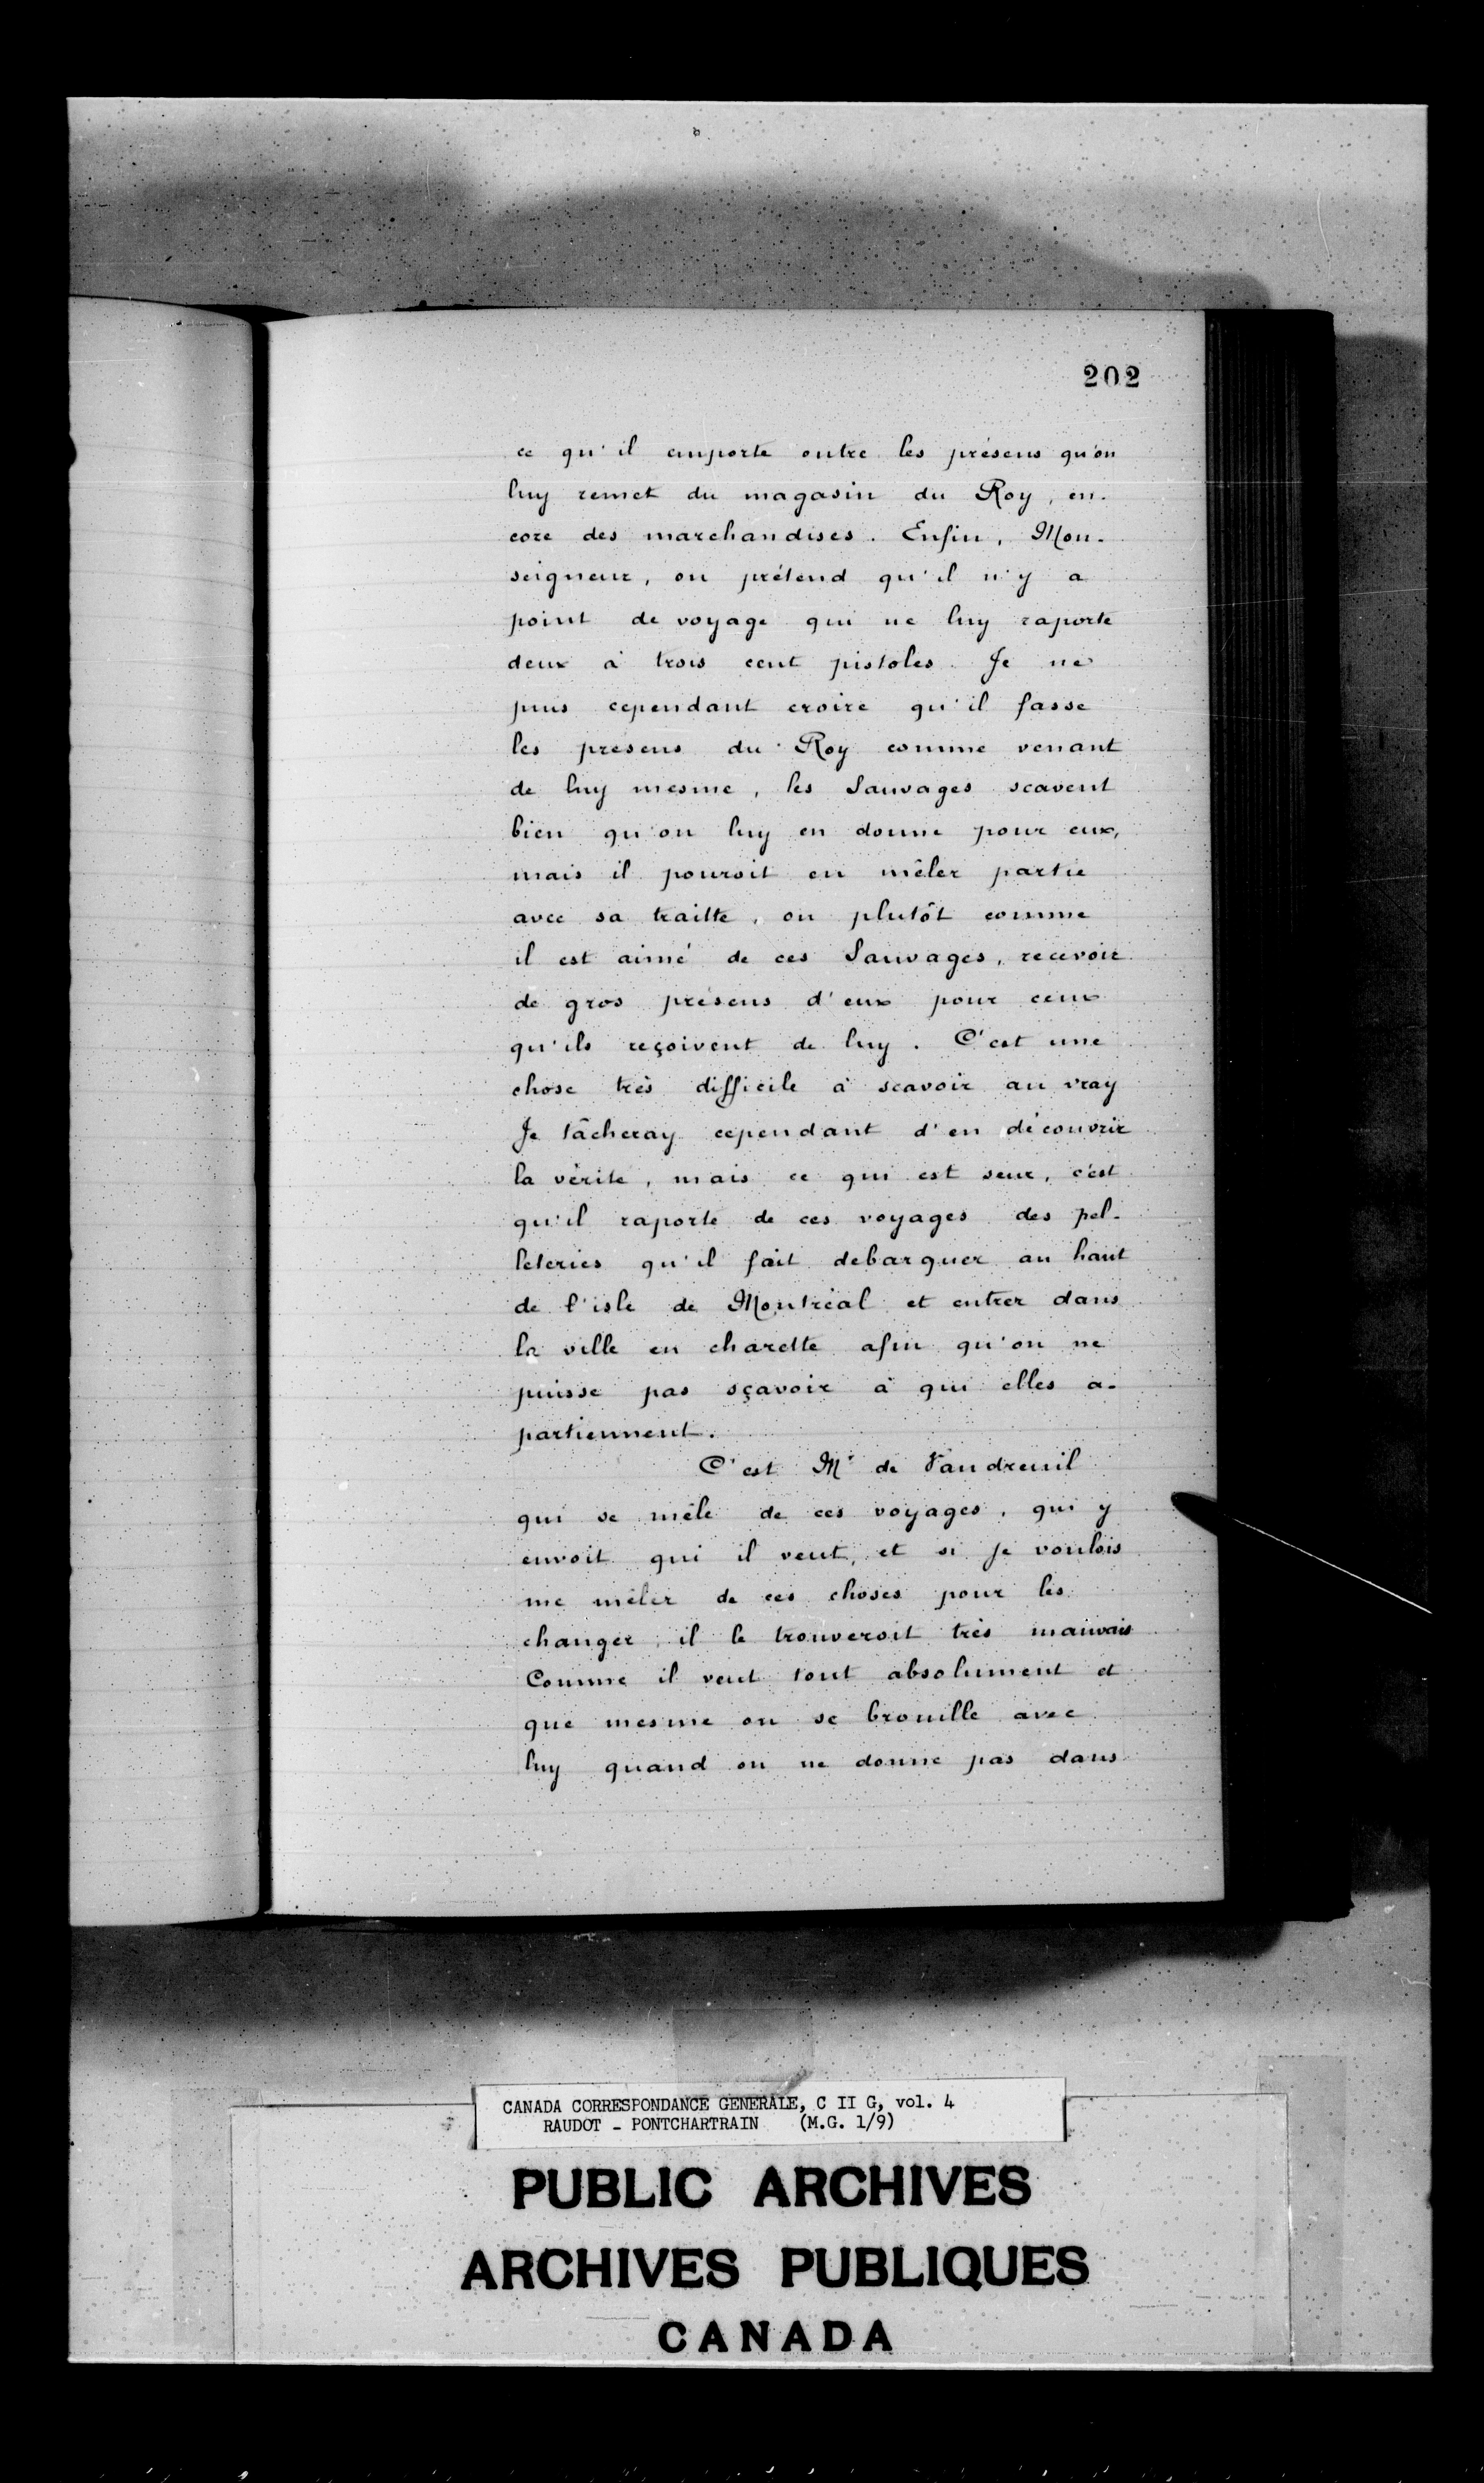 202
ce qu'il emporte outre les présens qu'on
luy remet du magasin du Roy, en-
core des marchandises. Enfin, Mon-
seigneur, on prétend qu'il n'y a
point de voyage qui ne luy raporte
deux à trois cent pistoles. Je ne
puis cependant croire qu'il fasse
les presens du Roy comme venant
de luy mesme, les Sauvages scavent
bien qu'on luy en donne pour eux,
mais il pouroit en mêler partie
avec sa traitte, ou plutôt comme
il est aimé de ces Sauvages, recevoir
de gros présens d'eux pour ceux
qu'ils reçoivent de luy. C'est une
chose très difficile à scavoir au vray
Je tâcheray cependant d'en découvrir
la vérité, mais ce qui est seur, c'est
qu'il raporte de ces voyages des pel-
leteries qu'il fait debarquer au haut
de l'isle de Montréal et entrer dans
la ville en charette afin qu'on ne
puisse pas sçavoir à qui elles a-
partiennent.
C'est Mr de Vaudreuil
qui se mêle de ces voyages, qui y
envoit qui il veut, et si je voulois
me mêler de ces choses pour les
changer, il le trouveroit très mauvais
Comme il veut tout absolument et
que mesme on se brouille avec
luy quand on ne donne pas dans
CANADA CORRESPONDANCE GENERALE, C II G, vol. 4
RAUDOT - PONTCHARTRAIN (M.G. 1/9)
PUBLIC ARCHIVES
ARCHIVES PUBLIQUES
CANADA